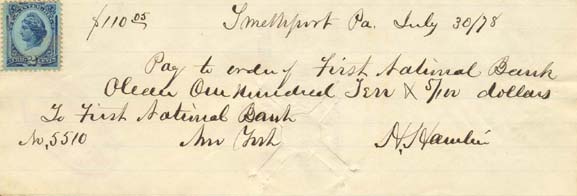 $110.05 Smethport Pa. July 30/78
Pay to order of First National Bank
Olean One Hundred Ten X 5/100 dollars
To First National Bank
No, 5510 New York H. Hamlin
2